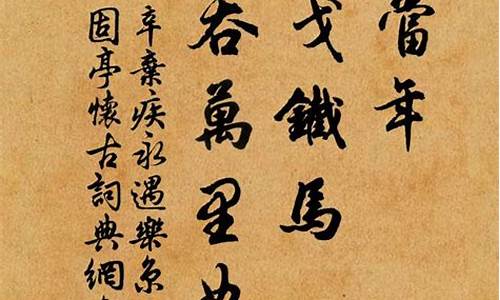 當年
戈鐵馬
吞萬里如
辛棄疾永遇樂京
固亭懷古詞典網